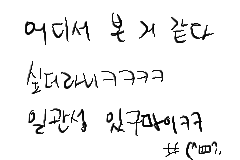 어디서 본 거 같다
싶더라니ㅋㅋㅋㅋ
일관성 있구마이ㅋㅋ